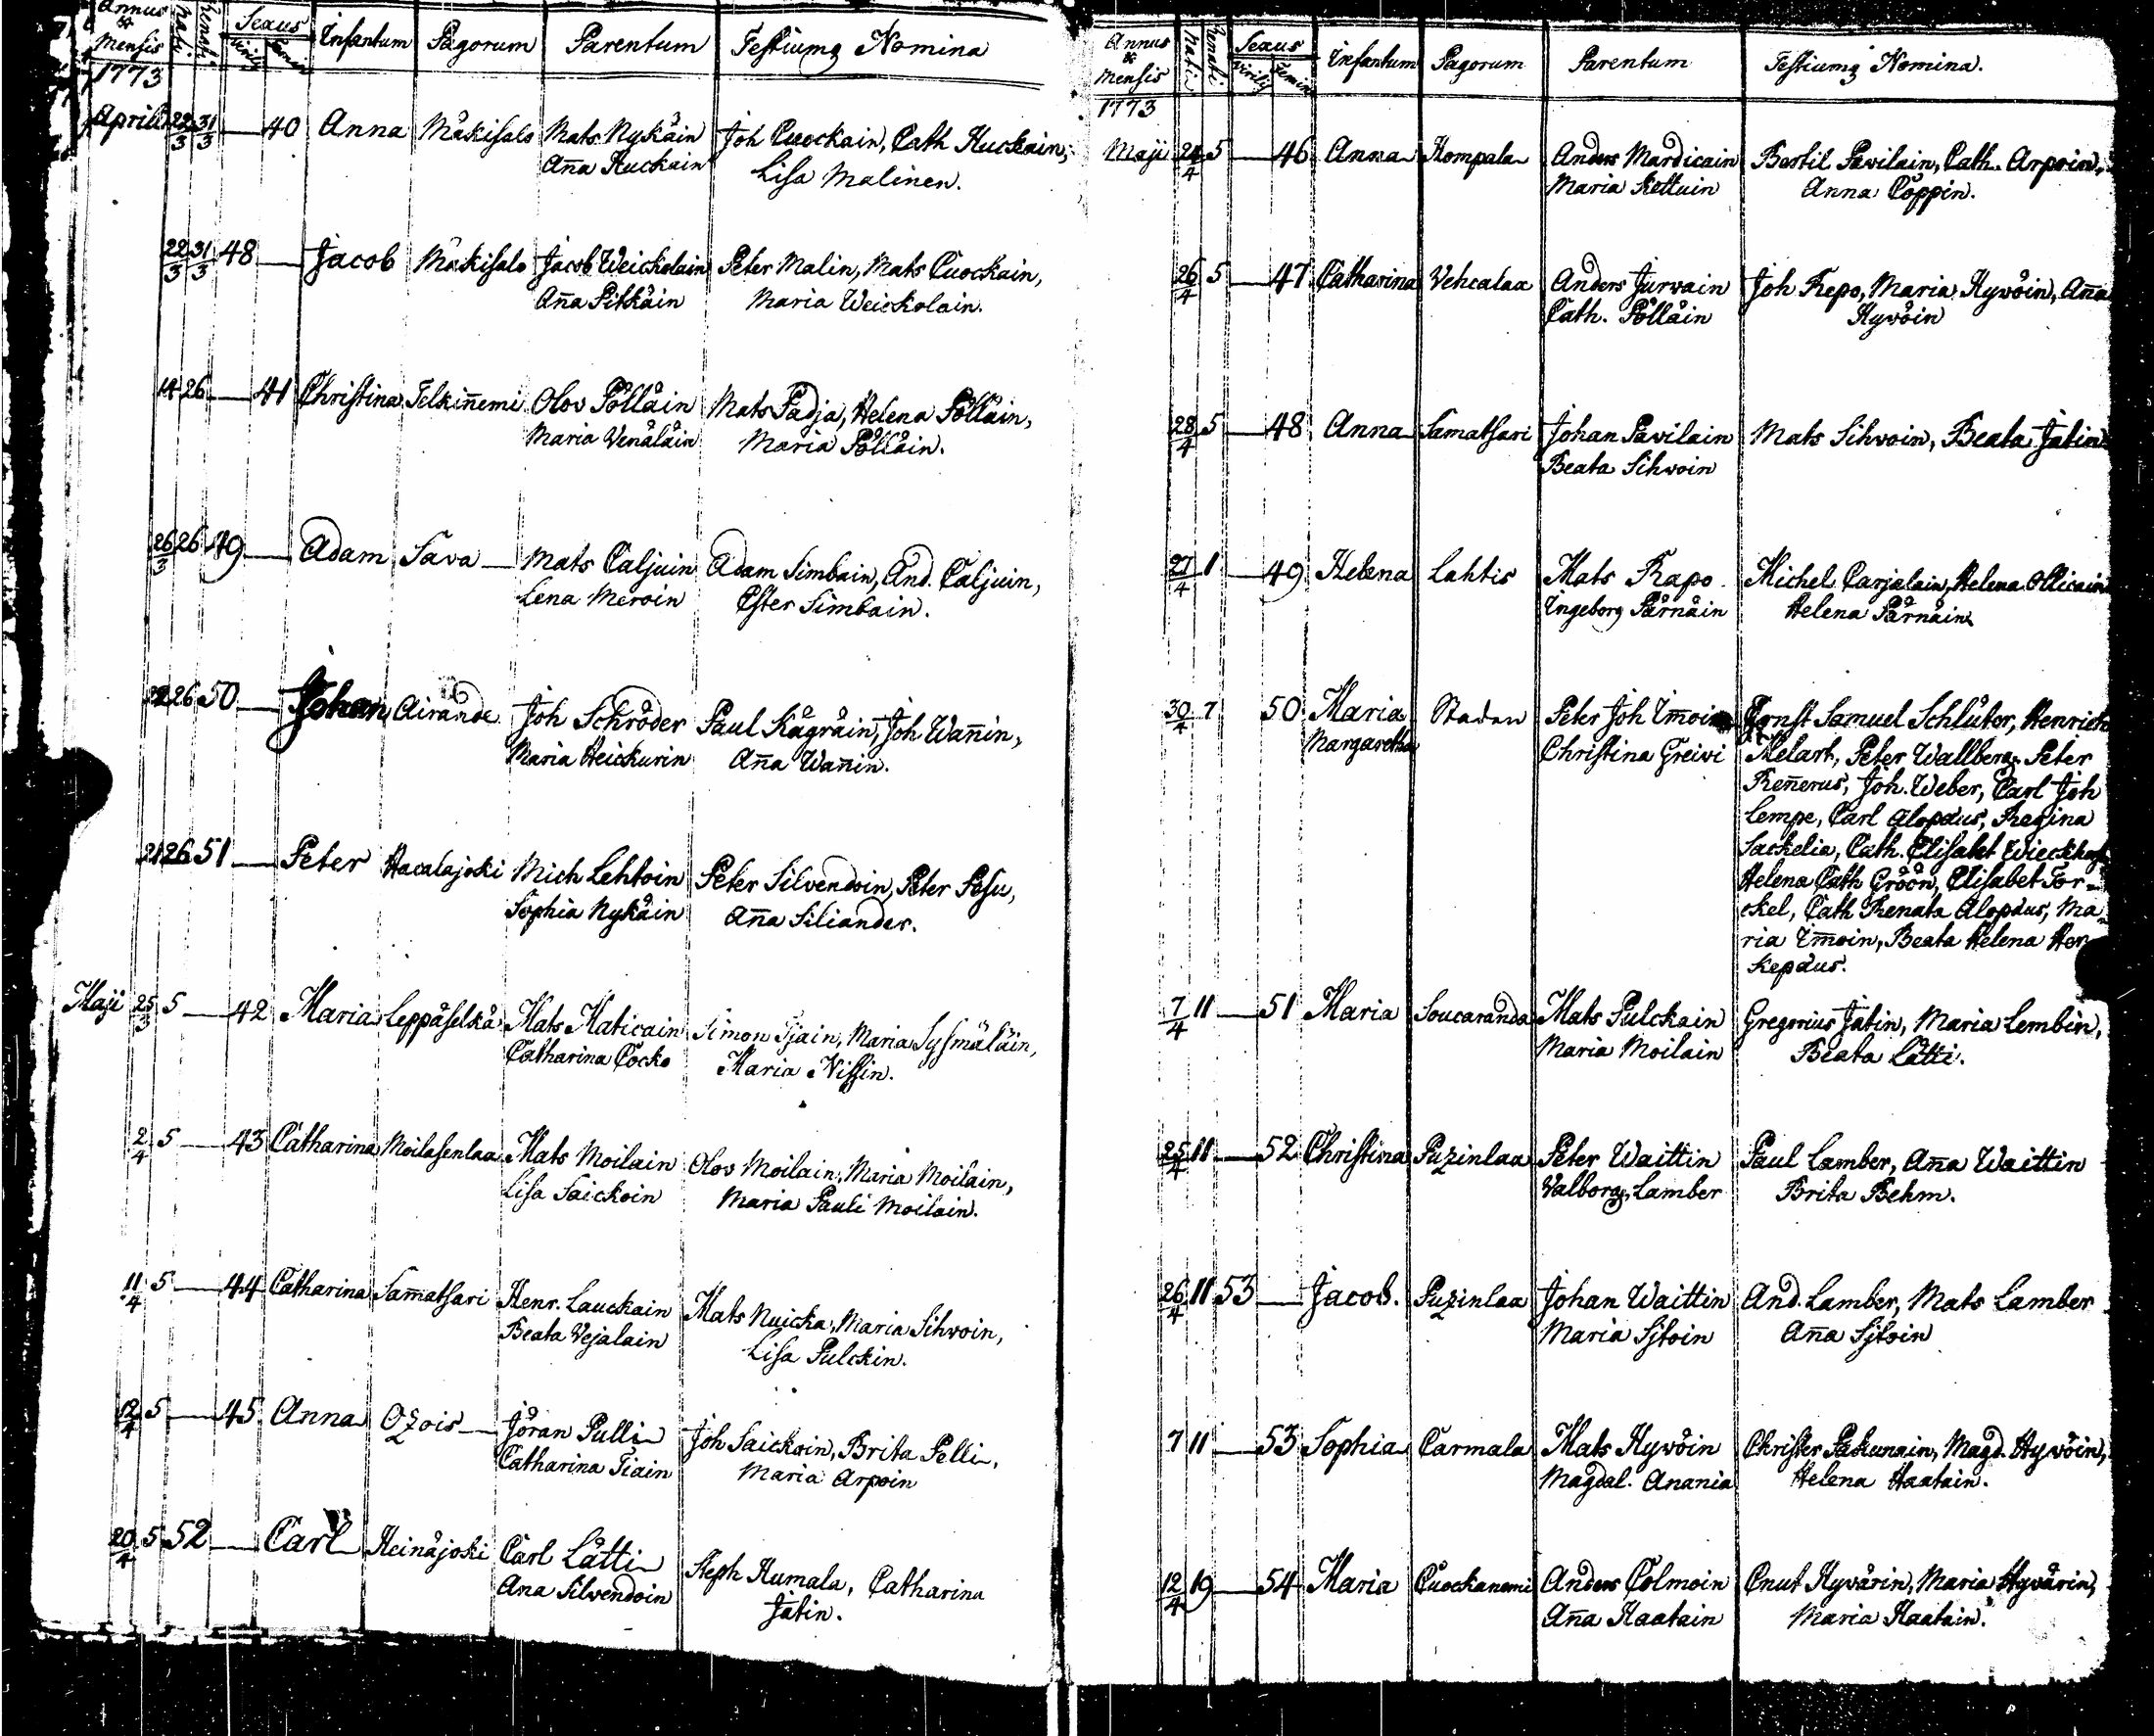 Annus & Mensis Nati Renati Sexus Virilis Femin Infantum Pagorum Parentum Testiumq Nomina
1773
Aprili 22/3 31/3 — 40 Anna Mäkisalo Mats Nykäin Joh Cuockain, Cath Huckain,
Aña Huckain Lisa Malinen.
22/3 31/3 48 — Jacob Mäkisalo Jacob Weickolain Peter Malin, Mats Cuockain,
Aña Pitkäin Maria Weickolain.
14 26 — 41 Christina Telkiñemi Olov Pölläin Mats Padja, Helena Pölläin,
Maria Venäläin Maria Pölläin.
26/3 26 49 — Adam Sava Mats Caljuin Adam Simbain, And. Caljuin,
Lena Meroin Ester Simbain.
22 26 50 — Johan Airande Joh Schröder Paul Kägräin, Joh Wañin,
Maria Heickurin Aña Wañin.
21 26 51 — Peter Hacalajoki Mich Lehtoin Peter Silvendoin, Peter Pesu,
Sophia Nykäin Aña Siliander.
Maji 25/3 5 — 42 Maria Leppäselkä Mats Maticain Simon Tjain, Maria Sysmäläin,
Catharina Cocko Maria Nissin.
2/4 5 — 43 Catharina Moilasenlaa Mats Moilain Olov Moilain, Maria Moilain,
Lisa Saickoin Maria Pauli Moilain.
11/4 5 — 44 Catharina Sam̄atsari Henr. Lauckain Mats Nuicka, Maria Sihvoin,
Beata Vejalain Lisa Pulckin.
12/4 5 — 45 Anna Ozois Jöran Pulli Joh Saickoin, Brita Pelli,
Catharina Tiain Maria Arpoin
20/4 5 52 — Carl Heinäjoki Carl Lätti Steph Humala, Catharina
Ana Silvendoin Jatin.
Annus & Mensis Nati Renati Sexus Virilis Femin Infantum Pagorum Parentum Testiumq Nomina.
1773
Maji 24/4 5 — 46 Anna Kompala Anders Mardicain Bertil Pavilain, Cath. Arpoin,
Maria Kettuin Anna Cöppin.
26/4 5 — 47 Catharina Vehcalax Anders Jurvain Joh Repo, Maria Hyvöin, Aña
Cath. Pölläin Hyvöin
28/4 5 — 48 Anna Samatsari Johan Pavilain Mats Sihvoin, Beata Jatin
Beata Sihvoin
27/4 1 — 49 Helena Lahtis Mats Rapo Michel Carjalain, Helena Ollicain
Ingeborg Pärnäin Helena Pärnäin
30/4 7 50 Maria Staden Peter Joh Im̄oin Ernst Samuel Schlüter, Henrich
Margaretha Christina Greivi Melart, Peter Wallberg, Peter
Reñerus, Joh. Weber, Carl Joh
Lempe, Carl Alopæus, Regina
Sackelia, Cath. Elisabet Wieckhof
Helena Cath Gröön, Elisabet Tor-
ckel, Cath Renata Alopæus, Ma-
ria Im̄oin, Beata Helena
kepæus.
7/4 11 — 51 Maria Soucaranda Mats Pulckain Gregorius Jatin, Maria Lembin,
Maria Moilain Beata Lätti.
25/4 11 — 52 Christina Puzinlaa Peter Waittin Paul Lamber, Aña Waittin
Valborg Lamber Brita Behm.
26/4 11 53 — Jacob. Puzinlaa Johan Waittin And. Lamber, Mats Lamber
Maria Sjtoin Aña Sjtoin
7 11 — 53 Sophia Carmala Mats Hyvöin Christer Pakunain, Magd. Hyvöin,
Magdal. Anania Helena Haatain.
12/4 19 — 54 Maria Cuockanemi Anders Colmoin Cnut Hyvärin, Maria Hyvärin,
Aña Haatain Maria Haatain.